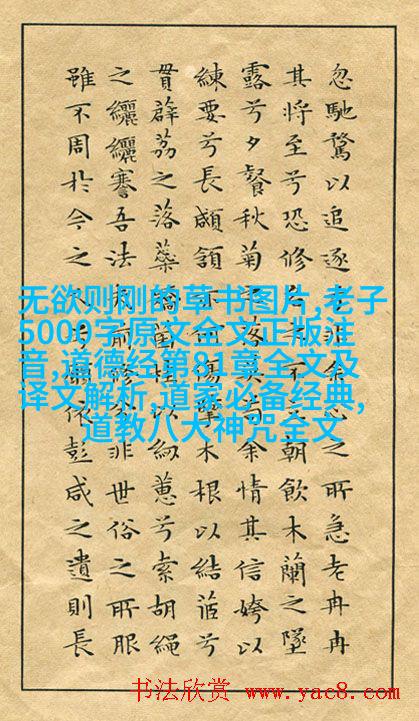 忽馳騖以追逐非余心之所急老冉冉
其將至兮恐修名不立朝飲木蘭之墜
露兮夕餐秋菊之落英苟余情其信姱以
練要兮長顑頷亦何傷擥木根以結茝兮
貫薜荔之落蘂矯菌桂以紉蕙兮索胡繩
之纚纚謇吾法夫前修兮非世俗之所服
雖不周於今之人兮願依彭咸之遺則長
无欲则刚的草书图片,老子
5000字原文全文正版注
音,道德经第81章全文及
译文解析,道家必备经典,
道教八大神咒全文
书法欣赏 www.yac8.com